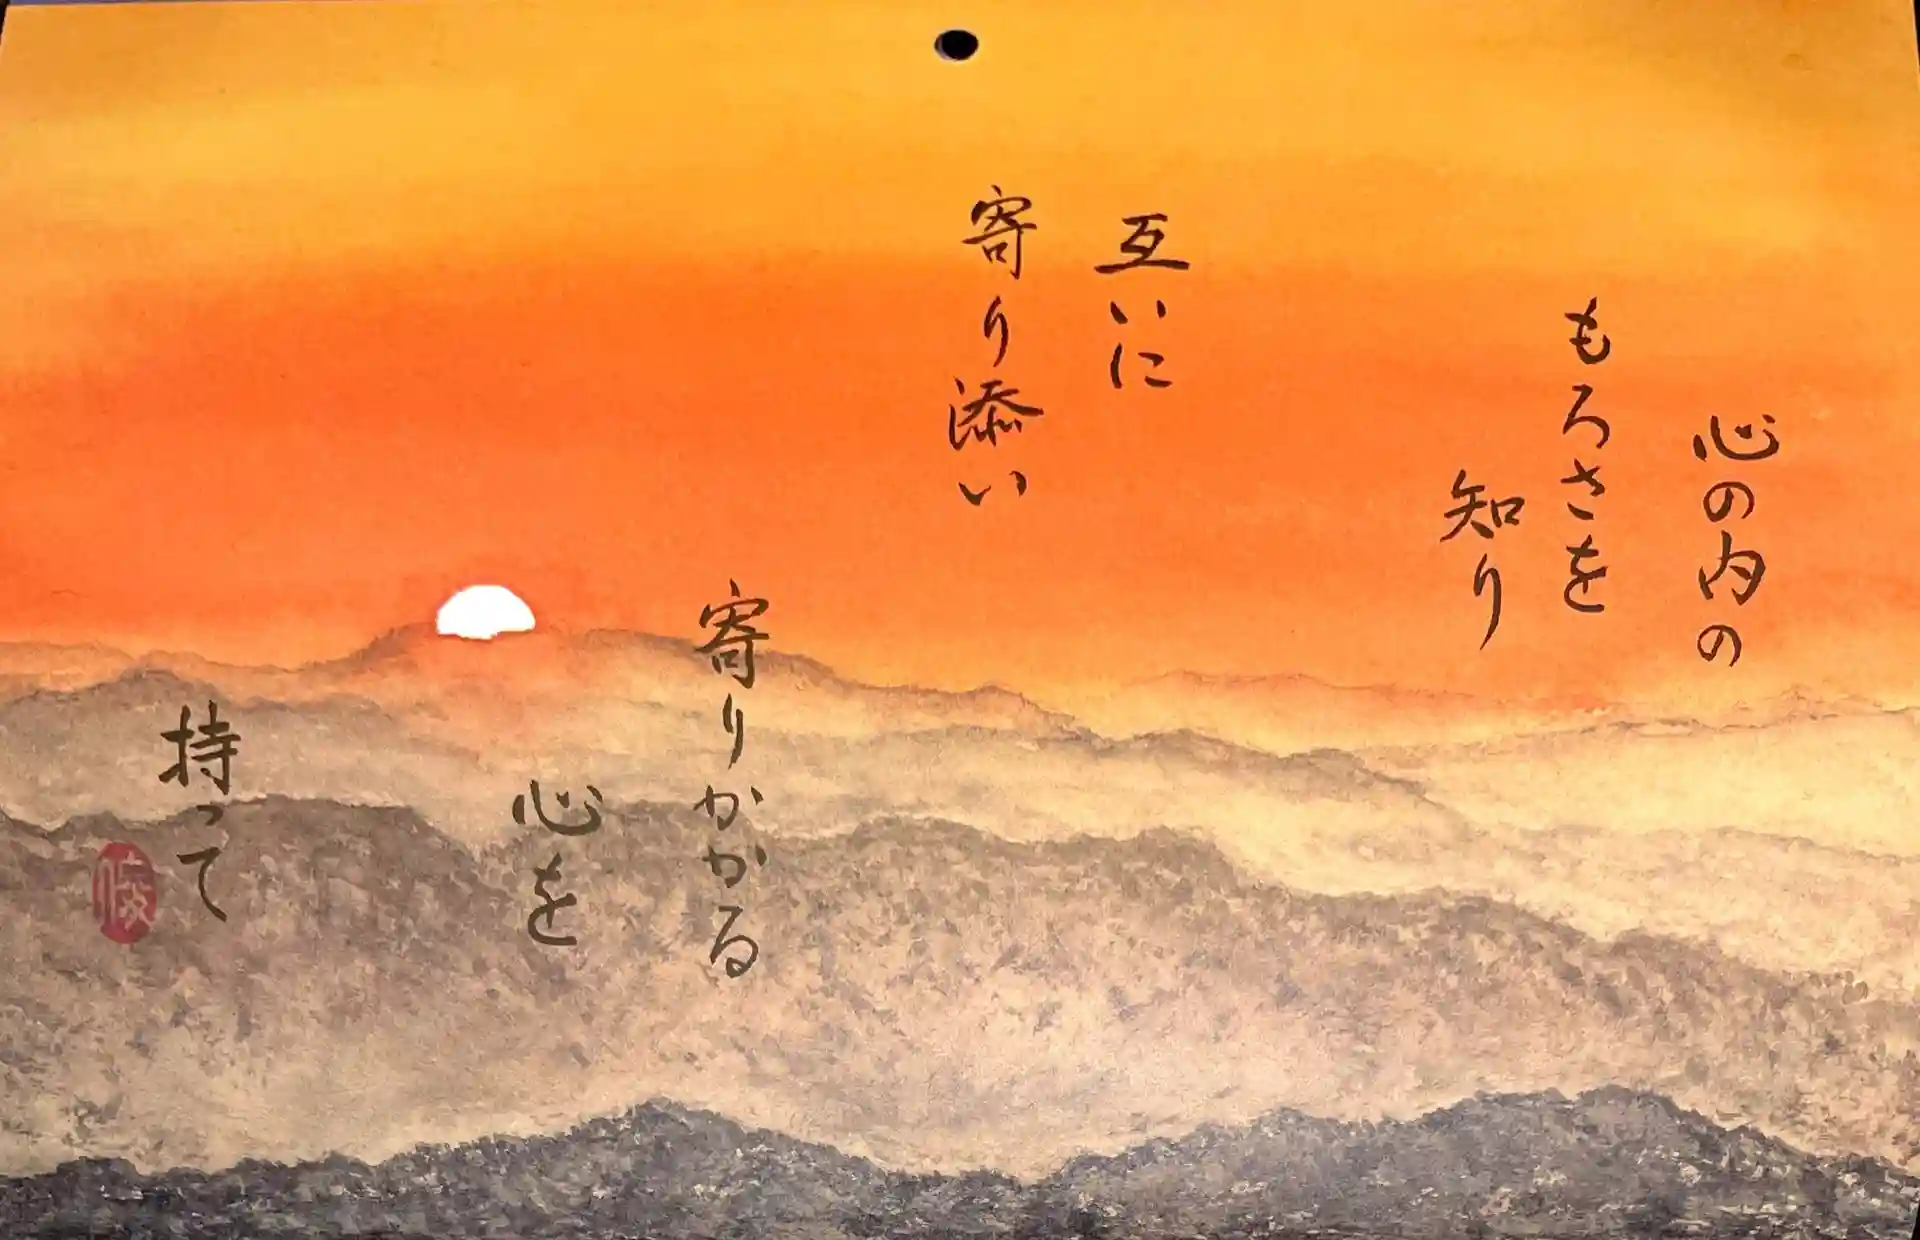 心の内の
もろさを
知り
互いに
寄り添い
寄りかかる
心を
持って